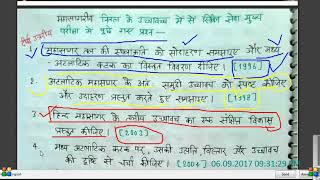 महासागरीय नितल के उच्चावच में से सिविल सेवा मुख्य
परीक्षा में पूछे गए प्रश्न —
1. महासागर तल की स्थलाकृति को साधारण समझाए और मध्य-
अटलांटिक कटक का विस्तृत विवरण दीजिए। [1994]
2. अटलांटिक महासागर के अंतः समुद्री उच्चावच को स्पष्ट कीजिए
और उदाहरण प्रस्तुत करते हुए समझाए। [1998]
3. हिन्द महासागर के उच्चावच का एक संक्षिप्त विवरण
प्रस्तुत कीजिए। [2003]
4. मध्य अटलांटिक कटक पर, उसकी उत्पत्ति विस्तार और उच्चावच
की दृष्टि से चर्चा कीजिए। [2004]
06.09.2017 09:31:29